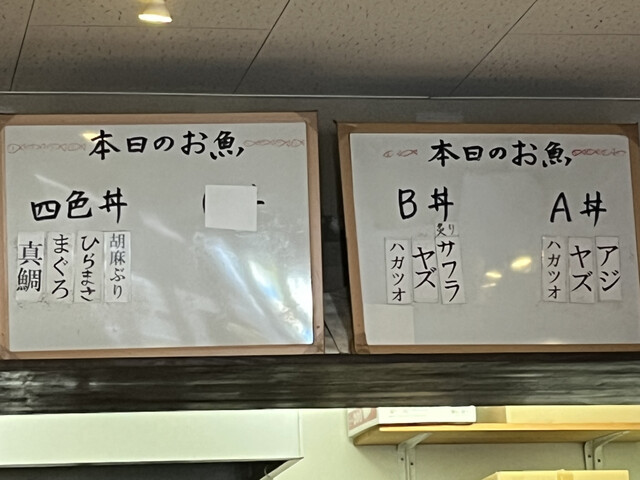 本日のお魚
四色丼
胡麻ぶり
ひらまさ
まぐろ
真鯛
本日のお魚
A丼
アジ
ヤズ
ハガツオ
B丼
炙りサワラ
ヤズ
ハガツオ